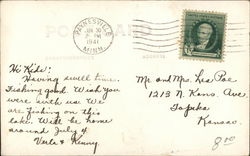 PAYNESVILLE
JUN 30
2 PM
1941
MINN.
POST CARD
Hi Kids:
Having swell time.
Fishing good. Wish you
were with us. We
are fishing on this
lake. Will be home
around July 4
Verla & Henry
Mr and Mrs. Les Poe
1213 N. Kans. Ave.
Topeka
Kansas.
8.00